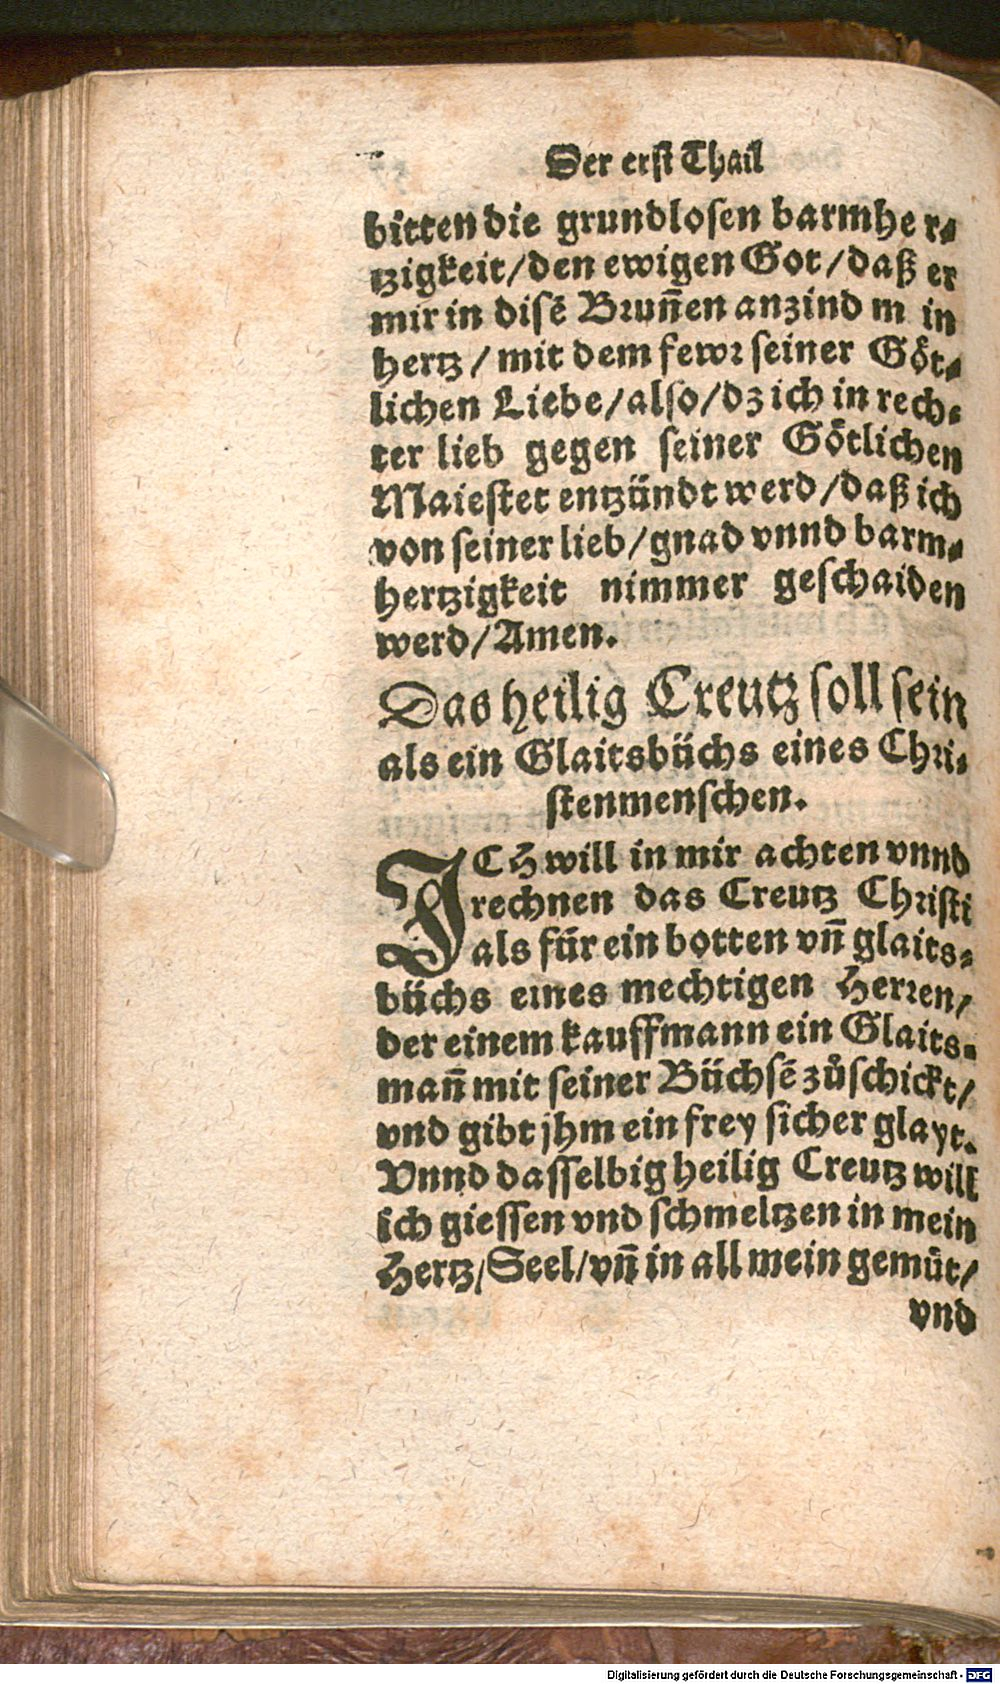 Der erst Thail
bitten die grundlosen barmher⸗
tzigkeit/den ewigen Got/daß er
mir in disē Brun̄en anzind m in
hertz/mit dem fewr seiner Göt⸗
lichen Liebe/also/dz ich in rech⸗
ter lieb gegen seiner Götlichen
Maiestet entzündt werd/daß ich
von seiner lieb/gnad vnnd barm⸗
hertzigkeit nimmer geschaiden
werd/Amen.
Das heilig Creutz soll sein
als ein Glaitsbüchs eines Chri⸗
stenmenschen.
ICH will in mir achten vnnd
rechnen das Creutz Christi
als für ein botten vn̄ glaits⸗
büchs eines mechtigen Herren/
der einem kauffmann ein Glaits⸗
man̄ mit seiner Büchsē zůschickt/
vnd gibt jhm ein frey sicher glayt.
Vnnd dasselbig heilig Creutz will
ich giessen vnd schmeltzen in mein
Hertz/Seel/vn̄ in all mein gemüt/
vnd
Digitalisierung gefördert durch die Deutsche Forschungsgemeinschaft - DFG